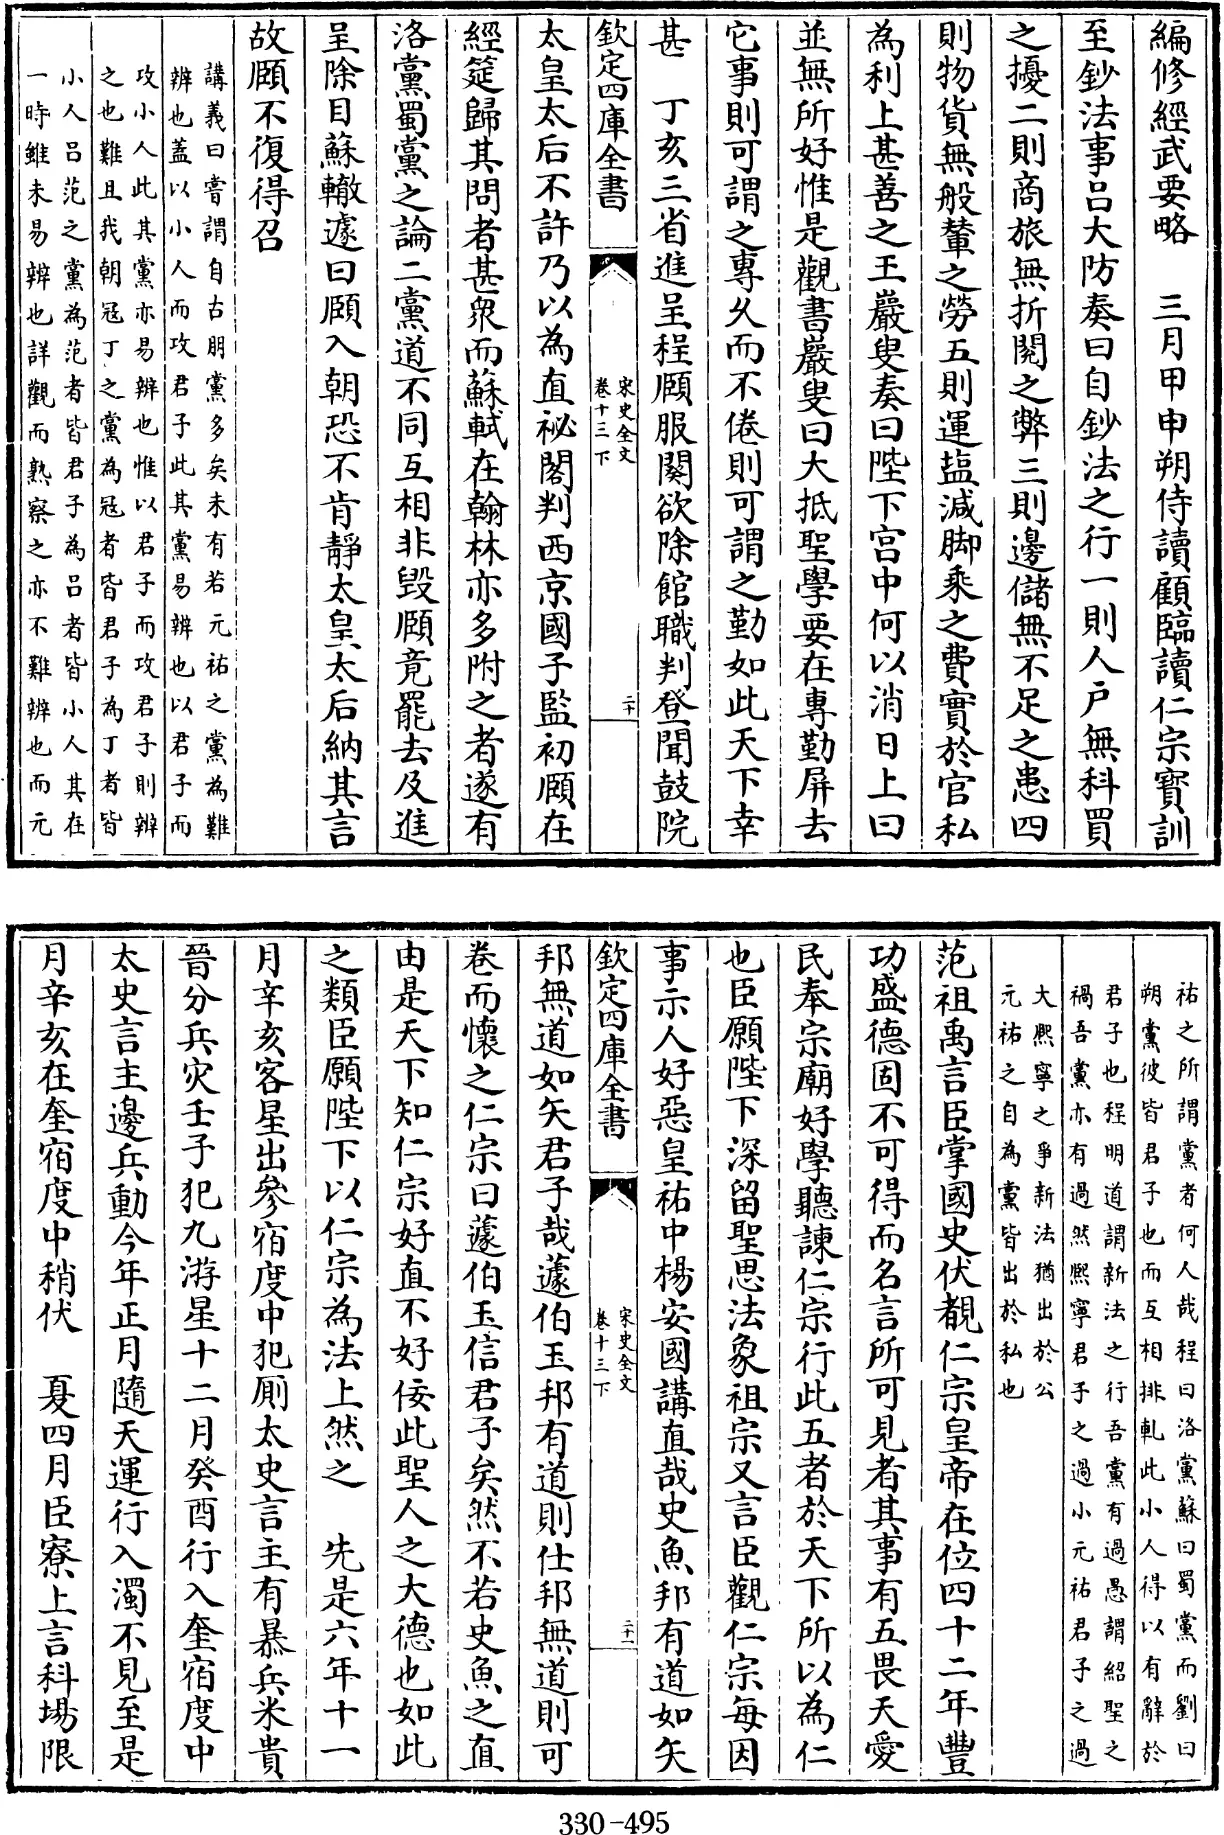 編修經武要略　三月甲申朔侍讀顧臨讀仁宗寶訓
至鈔法事呂大防奏曰自鈔法之行一則人户無科買
之擾二則商旅無折閱之弊三則邊儲無不足之患四
則物貨無般輦之勞五則運塩減脚乘之費實於官私
為利上甚善之王巖叟奏曰陛下宫中何以消日上曰
並無所好惟是觀書巖叟曰大抵聖學要在專勤屏去
它事則可謂之專久而不倦則可謂之勤如此天下幸
甚　丁亥三省進呈程頤服闋欲除館職判登聞鼓院
欽定四庫全書
宋史全文
卷十三下
二十
太皇太后不許乃以為直祕閣判西京國子監初頤在
經筵歸其問者甚衆而蘇軾在翰林亦多附之者遂有
洛黨蜀黨之論二黨道不同互相非毁頤竟罷去及進
呈除目蘇轍遽曰頤入朝恐不肯靜太皇太后納其言
故頤不復得召
講義曰嘗謂自古朋黨多矣未有若元祐之黨為難
辨也蓋以小人而攻君子此其黨易辨也以君子而
攻小人此其黨亦易辨也惟以君子而攻君子則辨
之也難且我朝冦丁之黨為冦者皆君子為丁者皆
小人吕范之黨為范者皆君子為吕者皆小人其在
一時雖未易辨也詳觀而熟察之亦不難辨也而元
祐之所謂黨者何人哉程曰洛黨蘇曰蜀黨而劉曰
朔黨彼皆君子也而互相排軋此小人得以有辭於
君子也程明道謂新法之行吾黨有過愚謂紹聖之
禍吾黨亦有過然熙寧君子之過小元祐君子之過
大熙寧之爭新法猶出於公
元祐之自為黨皆出於私也
范祖禹言臣掌國史伏覩仁宗皇帝在位四十二年豐
功盛德固不可得而名言所可見者其事有五畏天愛
民奉宗廟好學聽諫仁宗行此五者於天下所以為仁
也臣願陛下深留聖思法象祖宗又言臣觀仁宗每因
事示人好惡皇祐中楊安國講直哉史魚邦有道如矢
欽定四庫全書
宋史全文
卷十三下
二十一
邦無道如矢君子哉蘧伯玉邦有道則仕邦無道則可
卷而懷之仁宗曰蘧伯玉信君子矣然不若史魚之直
由是天下知仁宗好直不好佞此聖人之大德也如此
之類臣願陛下以仁宗為法上然之　先是六年十一
月辛亥客星出參宿度中犯厠太史言主有暴兵米貴
晉分兵灾壬子犯九游星十二月癸酉行入奎宿度中
太史言主邊兵動今年正月隨天運行入濁不見至是
月辛亥在奎宿度中稍伏　夏四月臣寮上言科塲限
330-495